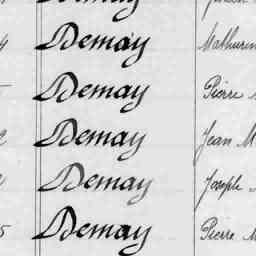 4 Demay Mathurin
Demay Pierre
2 Demay Jean M
Demay Joseph
5 Demay Pierre M